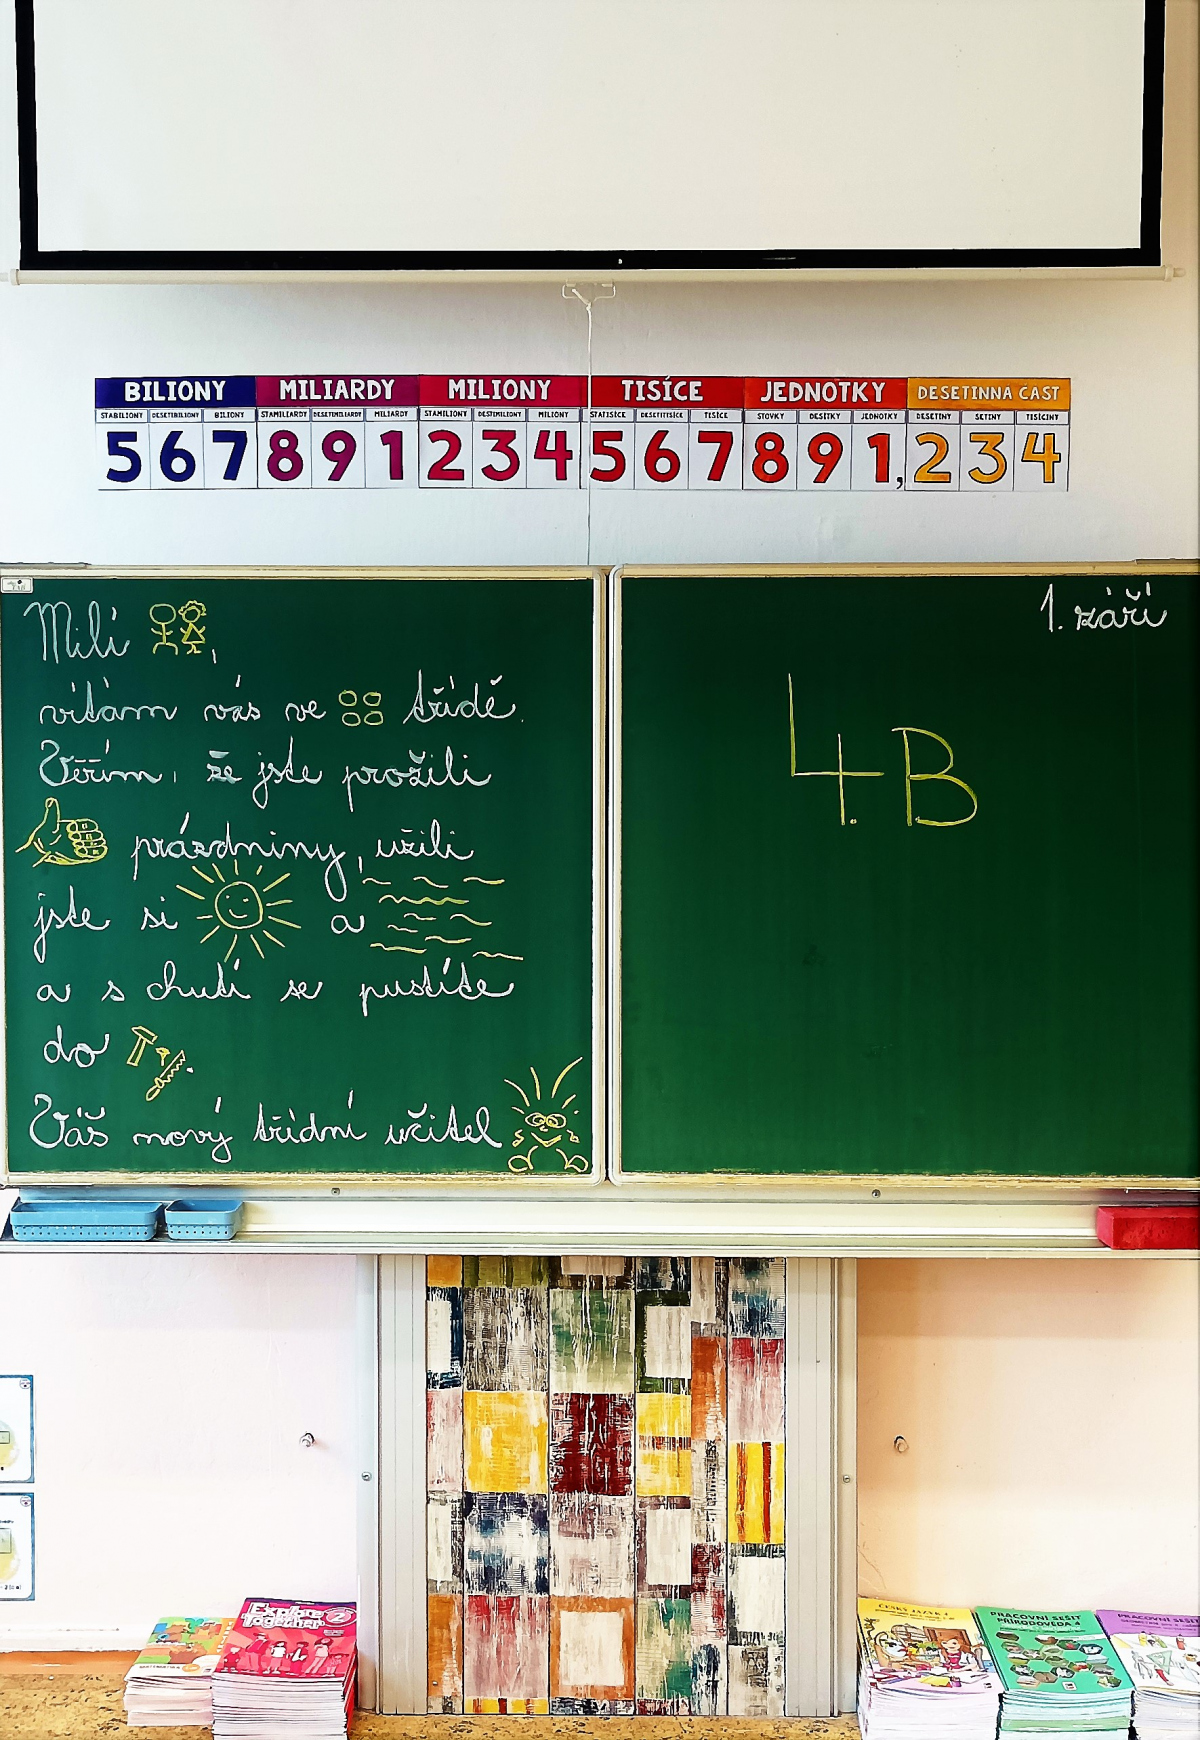 BILIONY MILIARDY MILIONY TISÍCE JEDNOTKY DESETINNA CAST
STABILIONY DESETIBILIONY BILIONY STAMILIARDY DESETIMILIARDY MILIARDY STAMILIONY DESTIMILIONY MILIONY STATISÍCE DESETITISÍCE TISÍCE STOVKY DESÍTKY JEDNOTKY DESETINY SETINY TISÍCINY
5 6 7 8 9 1 2 3 4 5 6 7 8 9 1, 2 3 4
Milí ,
vítám vás ve třídě.
Věřím, že jste prožili
prázdniny, užili
jste si a
a s chutí se pustíte
do .
Váš nový třídní učitel
1. září
4. B
Explore Together 2
MATEMATIKA
ČESKÝ JAZYK 4
PRACOVNÍ SEŠIT
PŘÍRODOVĚDA 4
PRACOVNÍ SEŠIT